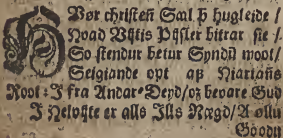 HVør christen Sæl þ hugleide /
Hvad Vhtis Pijslet bitrar sie /
So stendur betur Syndū moot /
Seigiande opt aß Hiartans
Root : J fra Andar-Deyd / oz bevare Gud
J Helovjte er alls Jlls Nægd / A ollu
Goodu